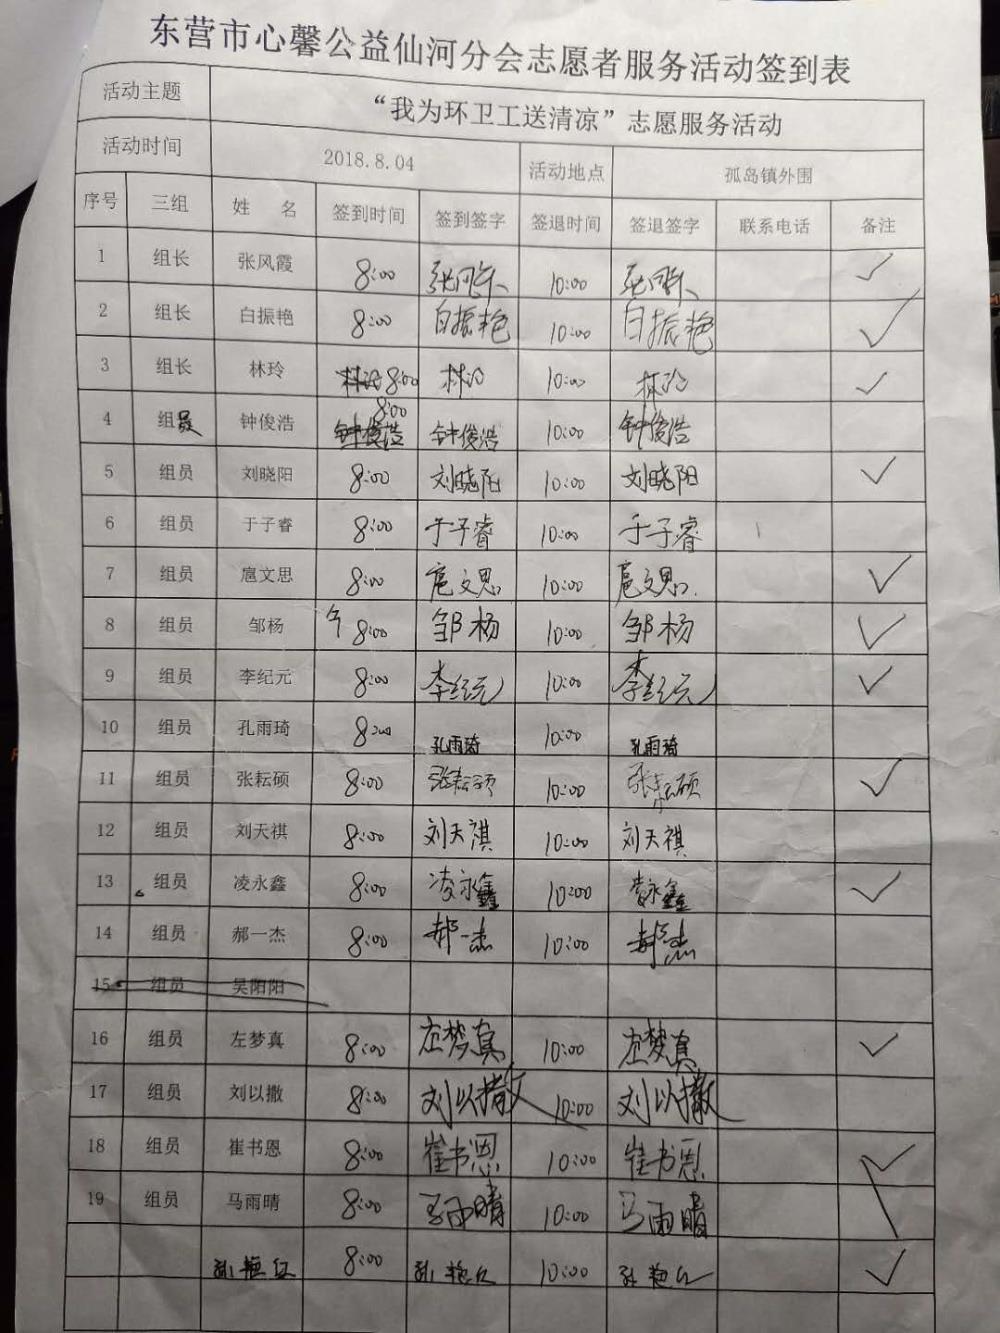 东营市心馨公益仙河分会志愿者服务活动签到表
活动主题 “我为环卫工送清凉”志愿服务活动
活动时间 2018.8.04 活动地点 孤岛镇外围
序号 三组 姓 名 签到时间 签到签字 签退时间 签退签字 联系电话 备注
1 组长 张风霞 8:00 张风霞 10:00 张风霞 ✓
2 组长 白振艳 8:00 白振艳 10:00 白振艳 ✓
3 组长 林玲 林玲 8:00 林玲 10:00 林玲 ✓
4 组员 钟俊浩 8:00 钟俊浩 钟俊浩 10:00 钟俊浩
5 组员 刘晓阳 8:00 刘晓阳 10:00 刘晓阳 ✓
6 组员 于子睿 8:00 于子睿 10:00 于子睿
7 组员 扈文思 8:00 扈文思 10:00 扈文思 ✓
8 组员 邹杨 8:00 邹杨 10:00 邹杨 ✓
9 组员 李纪元 8:00 李纪元 10:00 李纪元 ✓
10 组员 孔雨琦 8:00 孔雨琦 10:00 孔雨琦
11 组员 张耘硕 8:00 张耘硕 10:00 张耘硕 ✓
12 组员 刘天祺 8:00 刘天祺 10:00 刘天祺
13 组员 凌永鑫 8:00 凌永鑫 10:00 凌永鑫 ✓
14 组员 郝一杰 8:00 郝一杰 10:00 郝一杰
15 组员 吴阳阳
16 组员 左梦真 8:00 左梦真 10:00 左梦真 ✓
17 组员 刘以撒 8:00 刘以撒 10:00 刘以撒
18 组员 崔书恩 8:00 崔书恩 10:00 崔书恩 ✓
19 组员 马雨晴 8:00 马雨晴 10:00 马雨晴
孙艳红 8:00 孙艳红 10:00 孙艳红 ✓